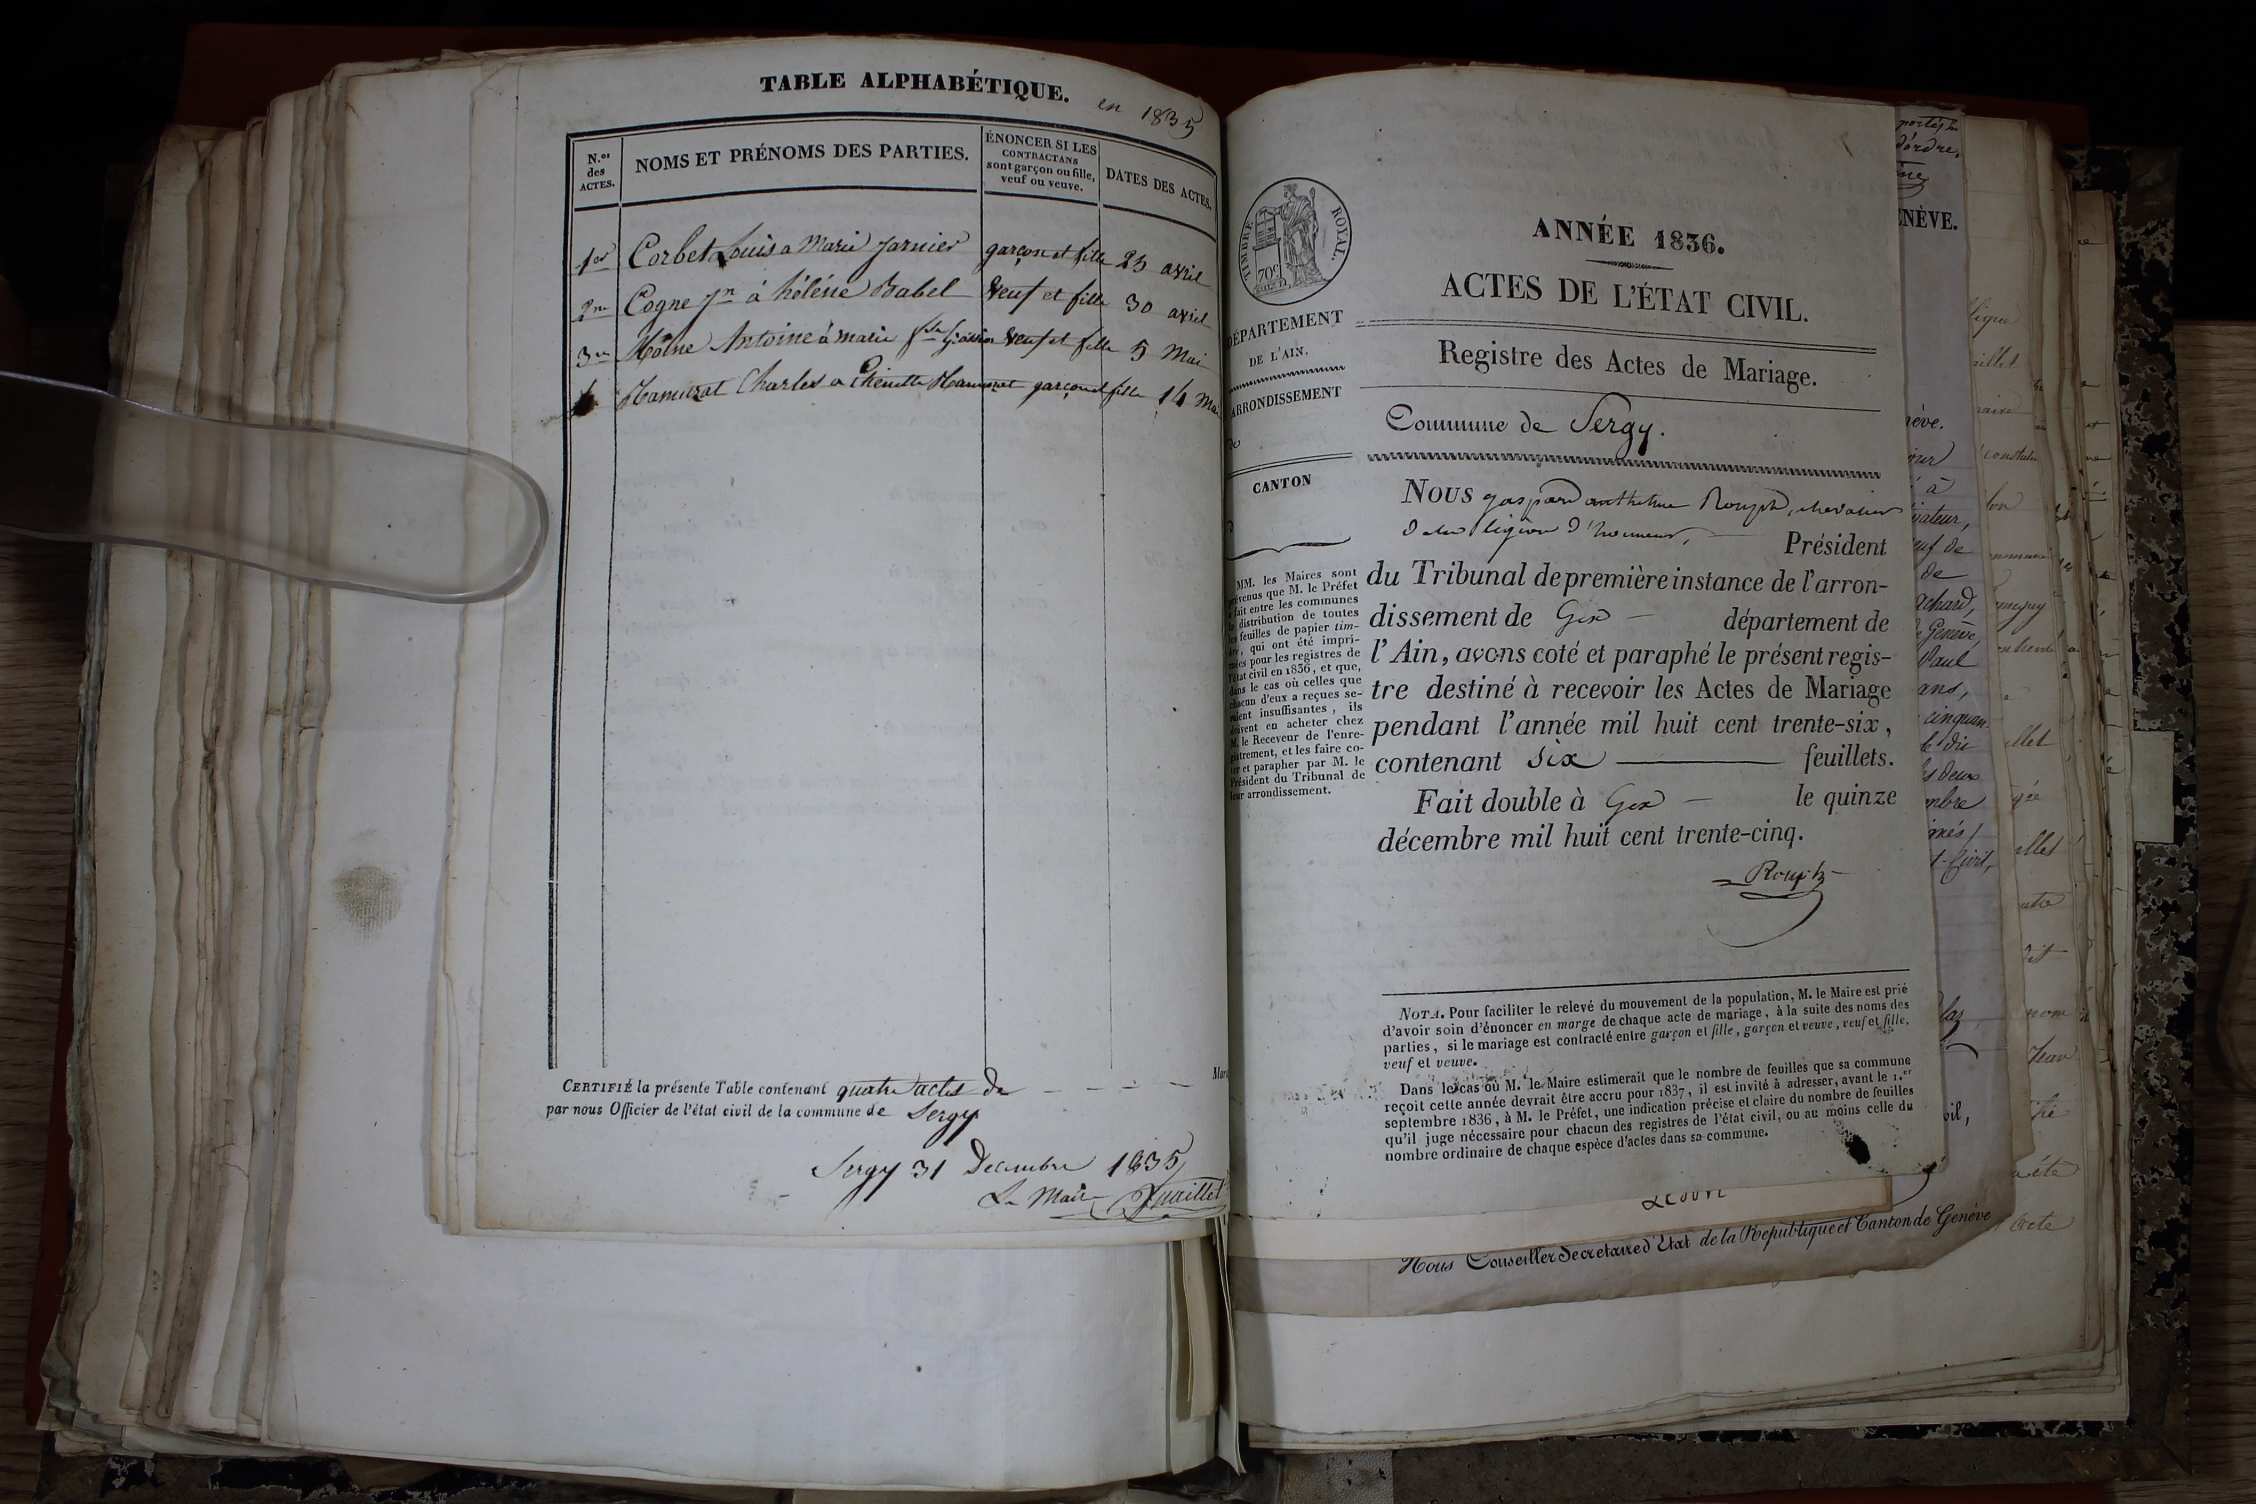 TABLE ALPHABÉTIQUE. en 1835
N.os des ACTES.
NOMS ET PRÉNOMS DES PARTIES.
ÉNONCER SI LES
CONTRACTANS
sont garçon ou fille,
veuf ou veuve.
DATES DES ACTES.
1er Corbet Louis a Marie garçon et fille 25 avril
2me Cogne Jn á héléne Babel Veuf et fille 30 avril
3me Antoine á marie Veuf et fille 5 Mai
Charles a garçon et fille 14 Mai
CERTIFIÉ la présente Table contenant quatre actes de
par nous Officier de l'état civil de la commune de Sergy
Sergy 31 Decembre 1835
Le Maire
TIMBRE ROYAL.
70c
DÉPARTEMENT
DE L'AIN.
ARRONDISSEMENT
CANTON
MM. les Maires sont
prévenus que M. le Préfet
a fait entre les communes
la distribution de toutes
les feuilles de papier tim-
bré, qui ont été impri-
mées pour les registres de
l'état civil en 1836, et que,
dans le cas où celles que
chacun d'eux a reçues se-
raient insuffisantes, ils
doivent en acheter chez
M. le Receveur de l'enre-
gistrement, et les faire co-
ter et parapher par M. le
Président du Tribunal de
leur arrondissement.
ANNÉE 1836.
ACTES DE L'ÉTAT CIVIL.
Registre des Actes de Mariage.
Commune de Sergy.
NOUS gaspard anthelme chevalier
de la légion d'honneur, Président
du Tribunal de première instance de l'arron-
dissement de Gex département de
l'Ain, avons coté et paraphé le présent regis-
tre destiné à recevoir les Actes de Mariage
pendant l'année mil huit cent trente-six,
contenant six feuillets.
Fait double à Gex le quinze
décembre mil huit cent trente-cinq.
NOTA. Pour faciliter le relevé du mouvement de la population, M. le Maire est prié
d'avoir soin d'énoncer en marge de chaque acte de mariage, à la suite des noms des
parties, si le mariage est contracté entre garçon et fille, garçon et veuve, veuf et fille,
veuf et veuve.
Dans le cas où M. le Maire estimerait que le nombre de feuilles que sa commune
reçoit cette année devrait être accru pour 1837, il est invité à adresser, avant le 1.er
septembre 1836, à M. le Préfet, une indication précise et claire du nombre de feuilles
qu'il juge nécessaire pour chacun des registres de l'état civil, ou au moins celle du
nombre ordinaire de chaque espèce d'actes dans sa commune.
Nous Conseiller Secretaire d'Etat de la Republique et Canton de Genève